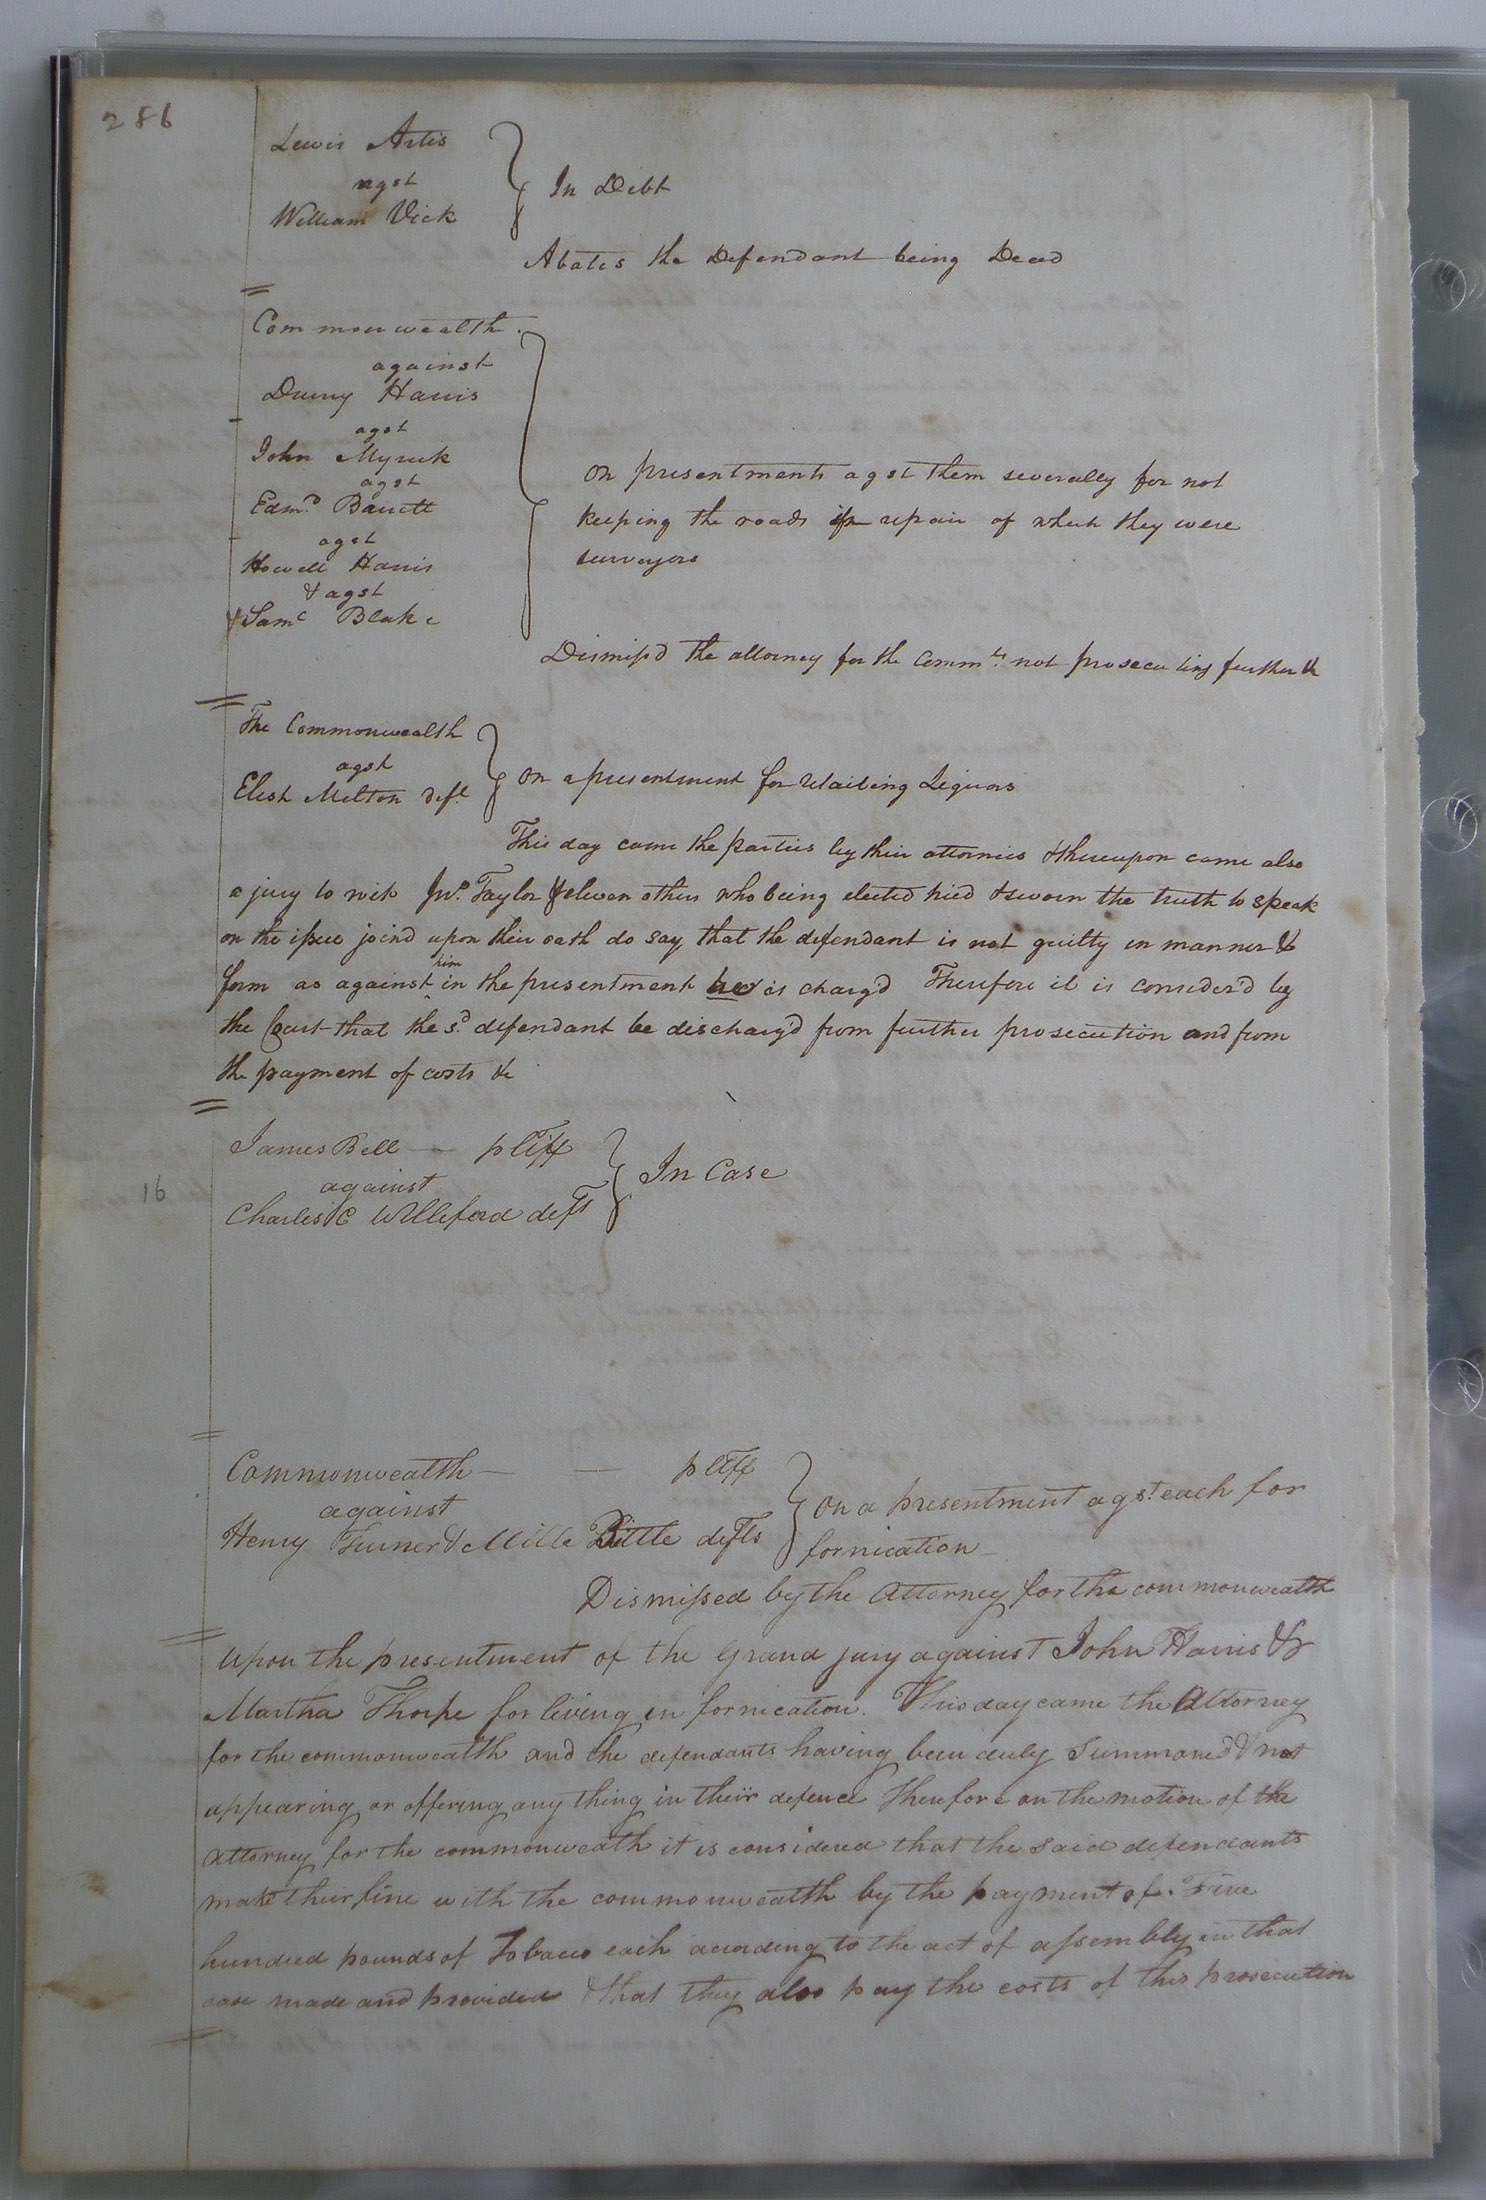 286
Lewis Artis
agst
William Vick
In Debt
Abates the Defendant being Dead
Commonwealth
against
Drury Harris
agst
John Myrick
agst
Edm.d Barrett
agst
Howell Harris
& agst
Saml Blake
on presentments agst them severally for not
keeping the roads in repair of which they were
surveyors
Dismiss'd the attorney for the Commth. not prosecuting further &
The Commonwealth
agst
Elish Melton deft
on a presentment for retailing Liquors
This day came the parties by their attornies & thereupon came also
a jury to wit Jno. Taylor & eleven others who being elected tried & sworn the truth to speak
on the issue joind upon their oath do say that the defendant is not guilty in manner &
form as against him in the presentment is charg'd Therefore it is consider'd by
the Court that the sd. defendant be discharg'd from further prosecution and from
the payment of costs &c
16
James Bell — pltff
against
Charles C Williford deft
In Case
Commonwealth — — pltff
against
Henry Turner & Mille Bittle defts
on a presentment agst. each for
fornication
Dismissed by the Attorney for the commonwealth
Upon the presentment of the Grand jury against John Harris &
Martha Thorpe for living in fornication. This day came the Attorney
for the commonwealth and the defendants having been duly Summoned & not
appearing or offering any thing in their defence Therefore on the motion of the
attorney for the commonweath it is considered that the said defendants
make their fine with the commonwealth by the payment of. Five
hundred pounds of Tobacco each according to the act of assembly in that
case made and provided & that they also pay the costs of this prosecution